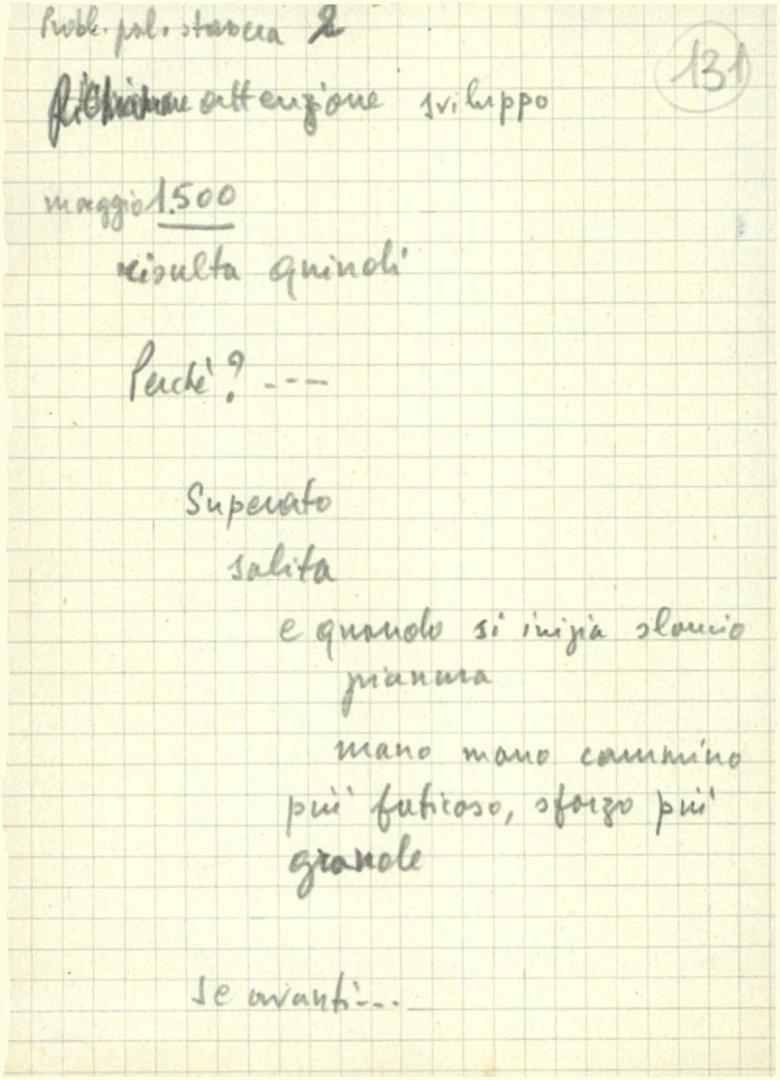 Probl. pol. stasera 2
131
Richiamare attenzione sviluppo
maggio 1.500
risulta quindi
Perché? ---
Superato
salita
e quando si inizia slancio
pianura
mano mano cammino
più faticoso, sforzo più
grande
se avanti...